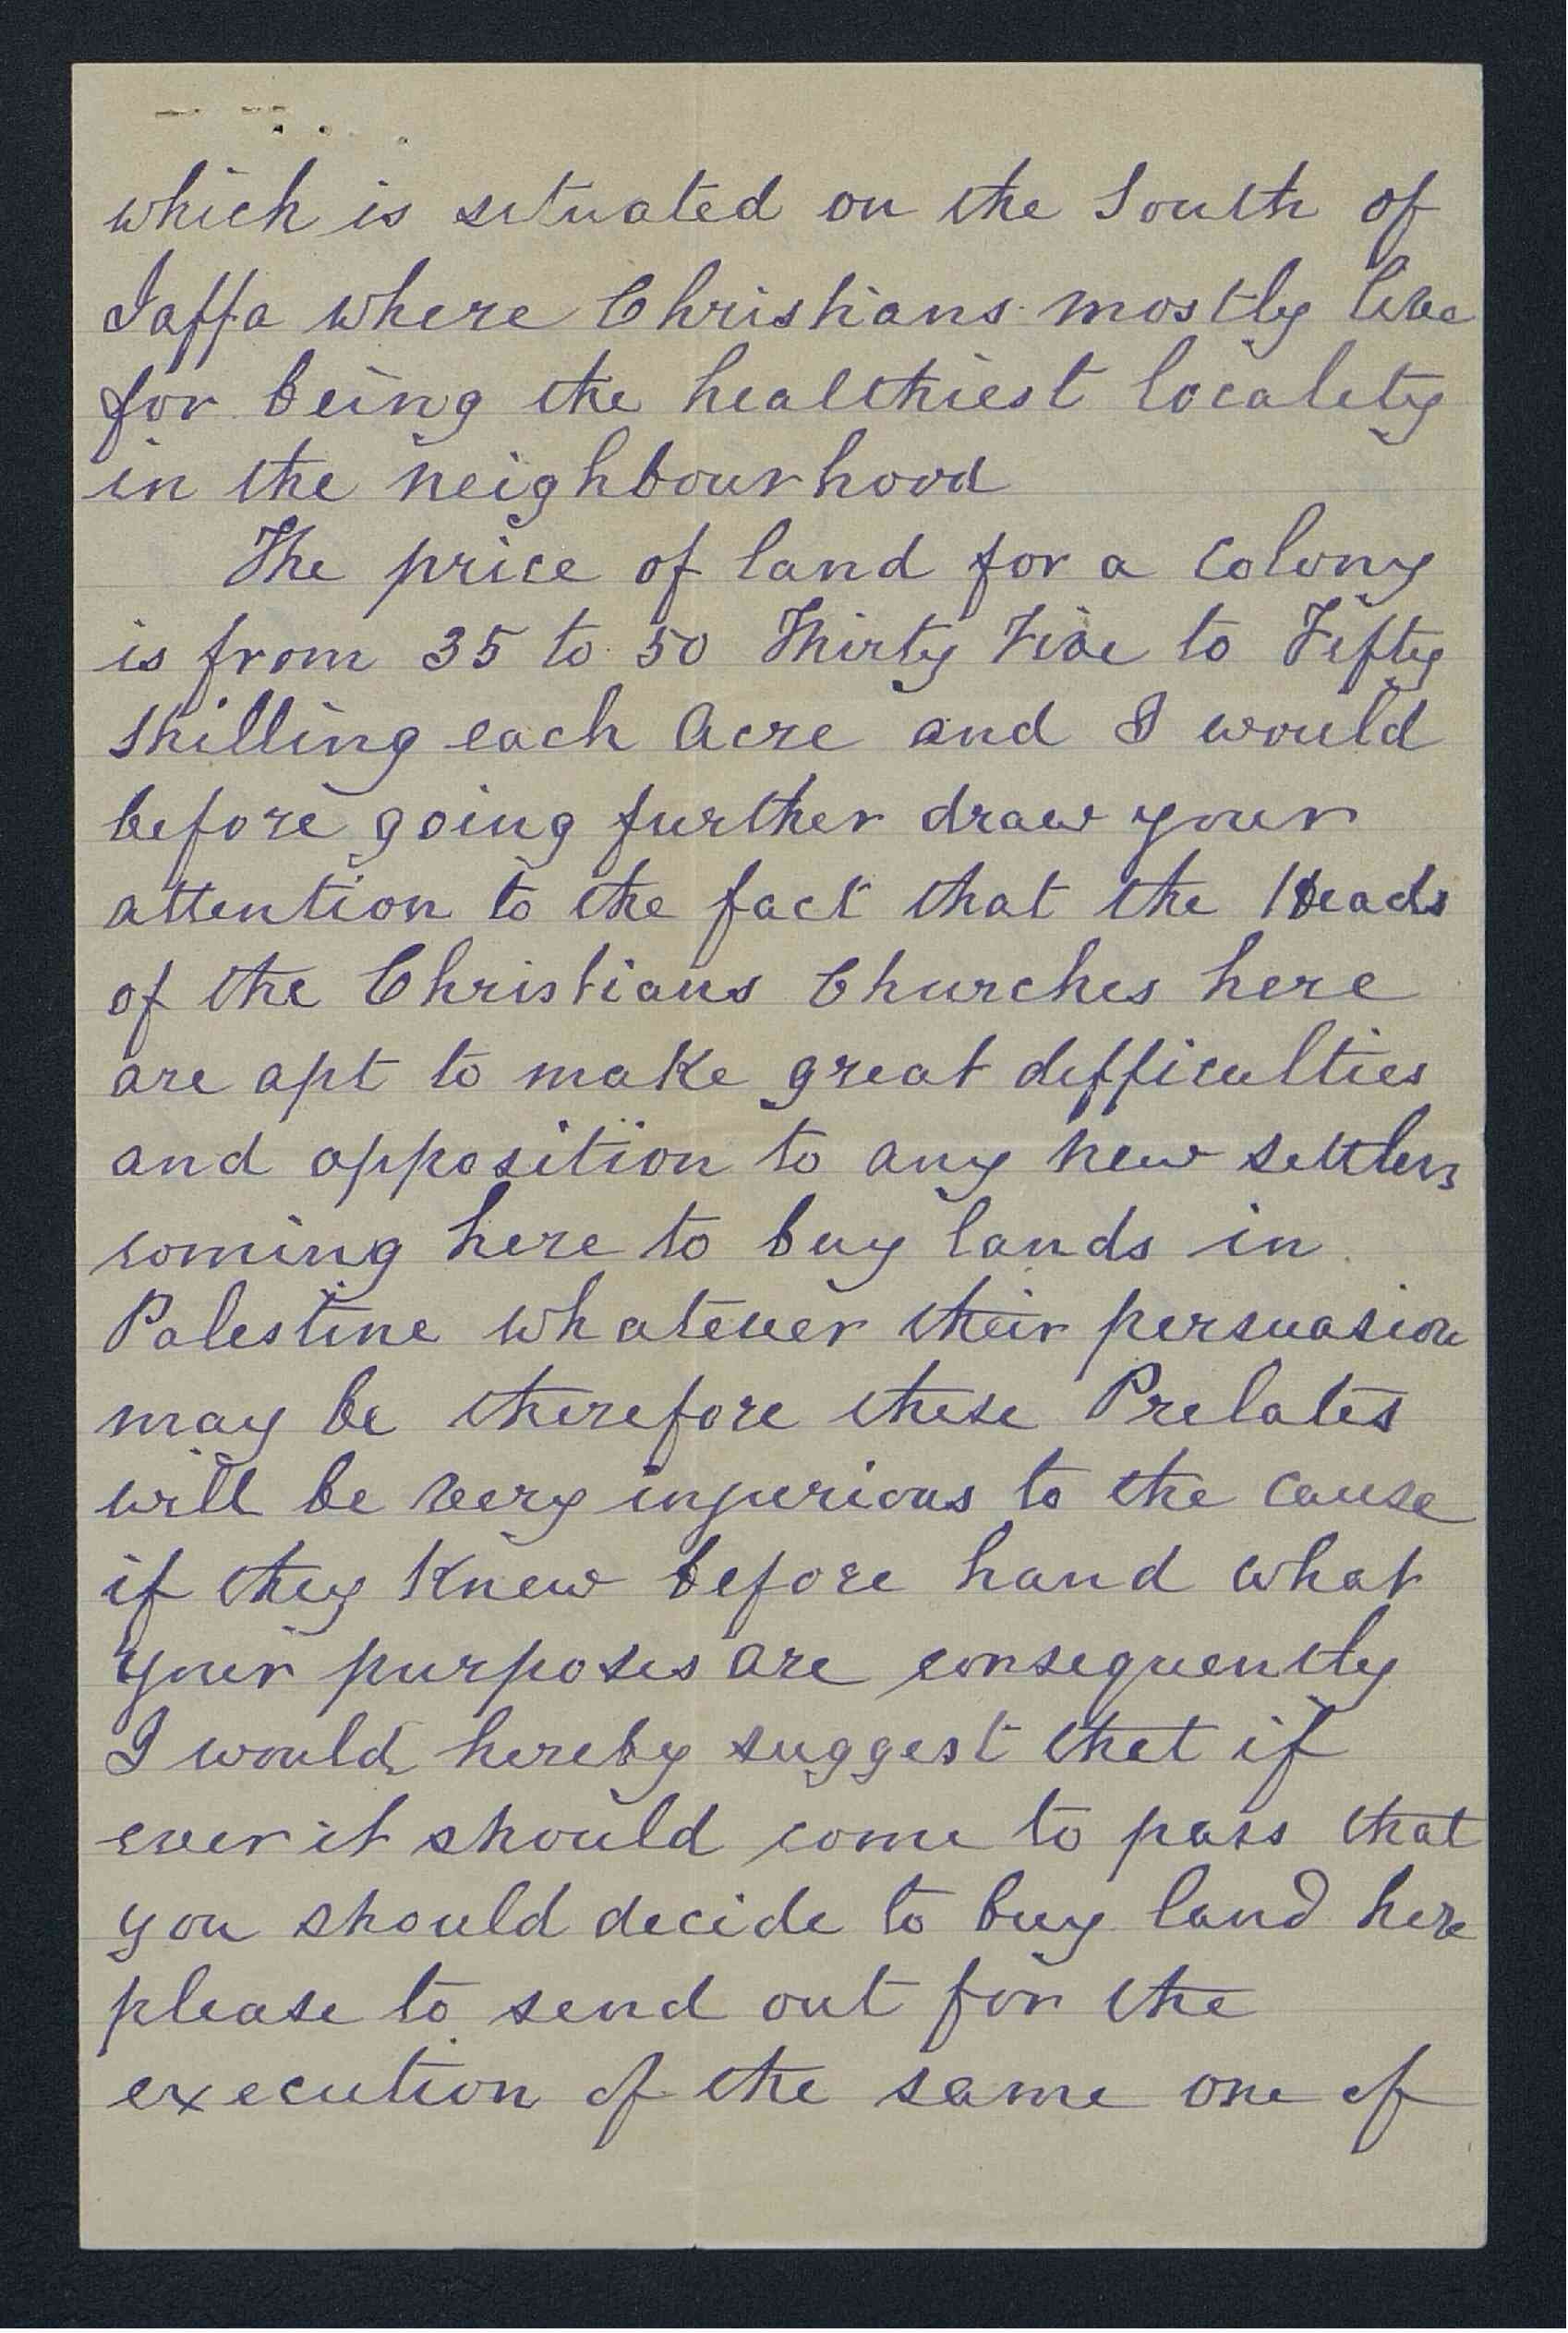 which is situated on the South of
Jaffa where Christians mostly live
for being the healthiest locality
in the neighbourhood
The price of land for a colony
is from 35 to 50 Thirty Five to Fifty
Shilling each acre and I would
before going further draw your
attention to the fact that the Heads
of the Christians Churches here
are apt to make great difficulties
and opposition to any new settlers
coming here to buy lands in
Palestine whatever their persuasion
may be therefore these Prelates
will be very injurious to the cause
if they Knew before hand what
your purposes are consequently
I would hereby suggest that if
ever it should come to pass that
you should decide to buy land here
please to send out for the
execution of the same one of